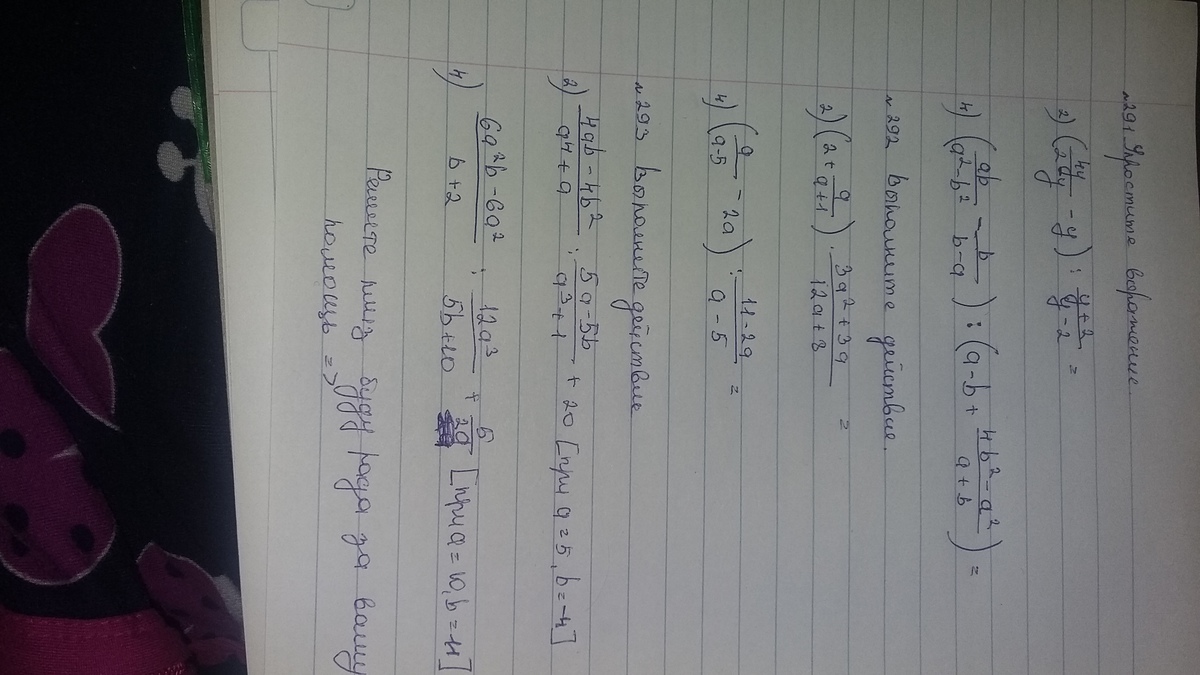 №291 Упростите выражение.
2) (4y/2-y - y) : y+2/y-2 =
4) (ab/a²-b² - b/b-a) : (a-b + 4b²-a²/a+b) =
№292 Выполните действия.
2) (2 + a/a+1) · 3a²+3a/12a+8 =
4) (a/a-5 - 2a) : 11-2a/a-5 =
№293 Выполнете действие
2) 4ab-4b²/a⁴+a : 5a-5b/a³+1 + 20 [при a=5, b=-4]
4) 6a²b-6a²/b+2 : 12a³/5b+10 + 5/2a [при a=10, b=11]
Решите плиз буду рада за вашу
помощь =>